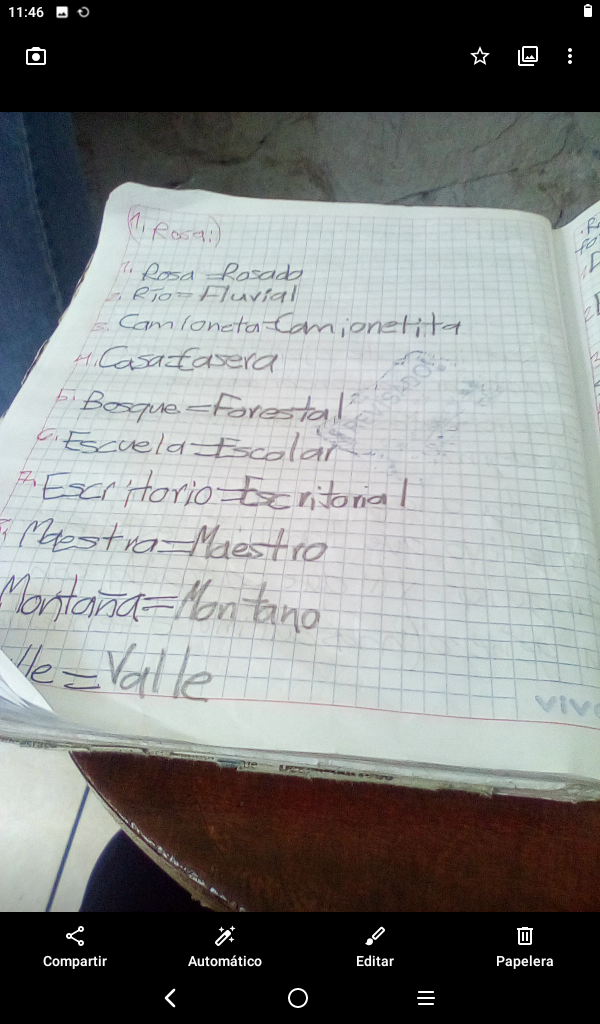 11:46
(1. Rosa:)
1. Rosa = Rosado
2. Río = Fluvial
3. Camioneta = Camionetita
4. Casa = Casera
5. Bosque = Forestal
6. Escuela = Escolar
7. Escritorio = Escritorial
8. Maestra = Maestro
Montaña = Montano
lle = Valle
REVISADO
vivo
Compartir
Automático
Editar
Papelera